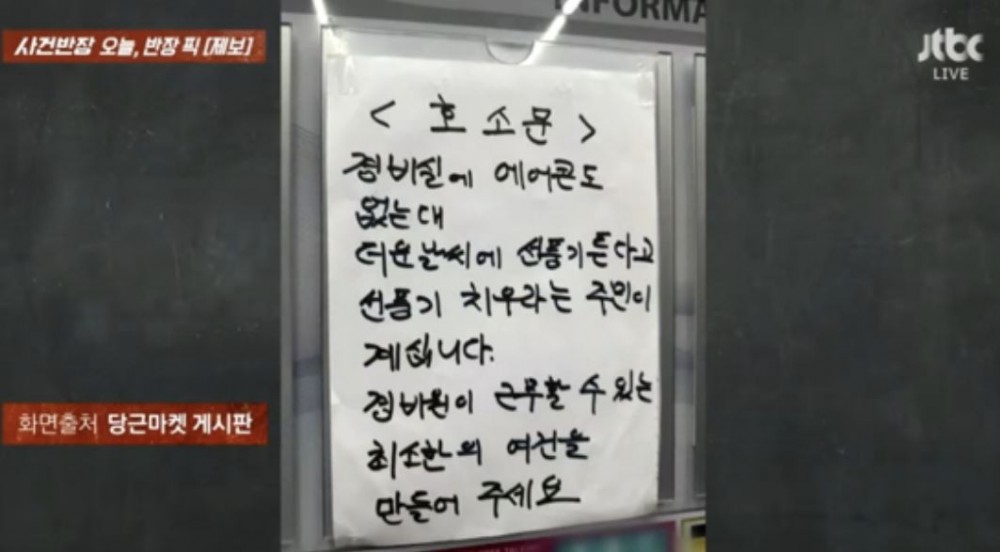 사건반장 오늘, 반장 픽 [제보]
jtbc
LIVE
INFORMA
< 호 소 문 >
경비실에 에어콘도
없는대
더운날씨에 선풍기튼다고
선풍기 치우라는 주민이
계십니다.
경비원이 근무할 수 있는
최소한의 여건을
만들어 주세요
화면출처 당근마켓 게시판